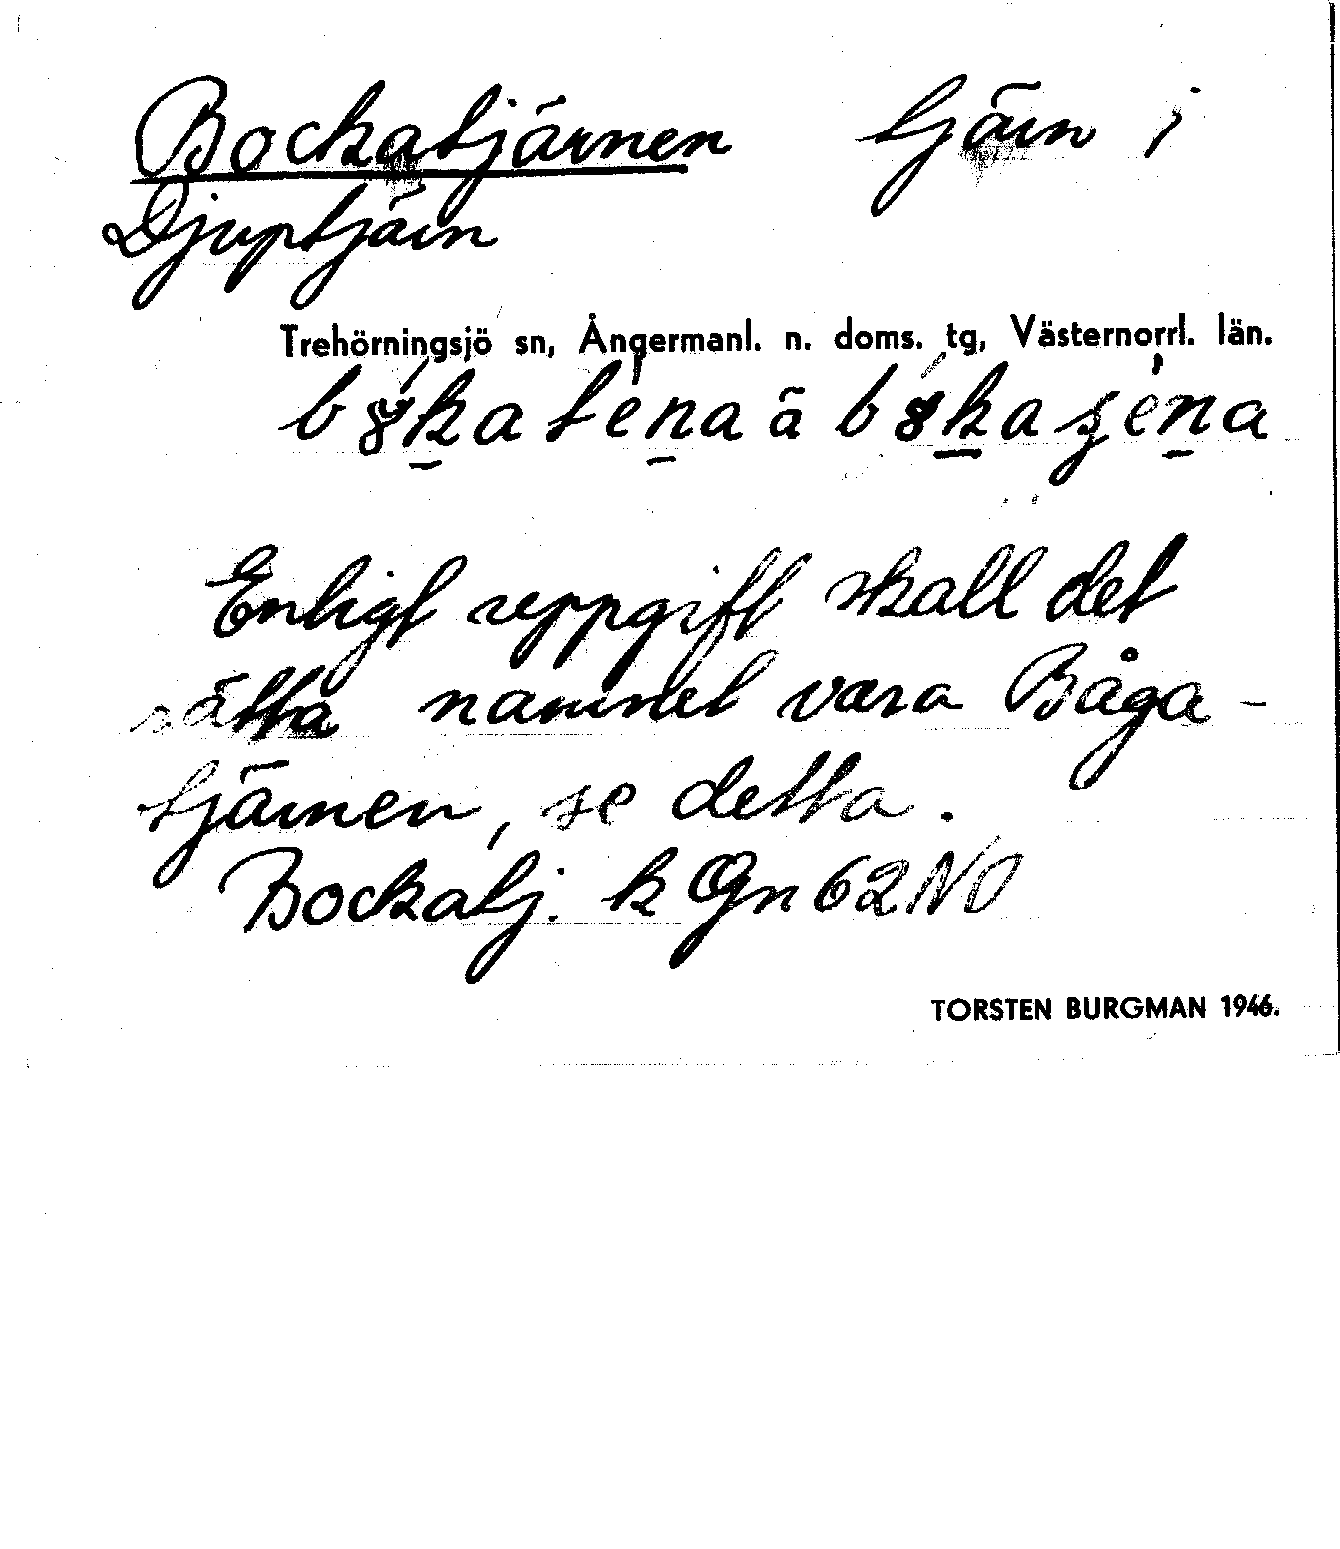 Bockatjärnen tjärn i
Djuptjärn
Trehörningsjö sn, Ångermanl. n. doms. tg, Västernorrl. län.
Enligt uppgift skall det
rätta namnet vara Båga-
tjärnen, se detta.
Bockatj. k Gn 62 NO
TORSTEN BURGMAN 1946.